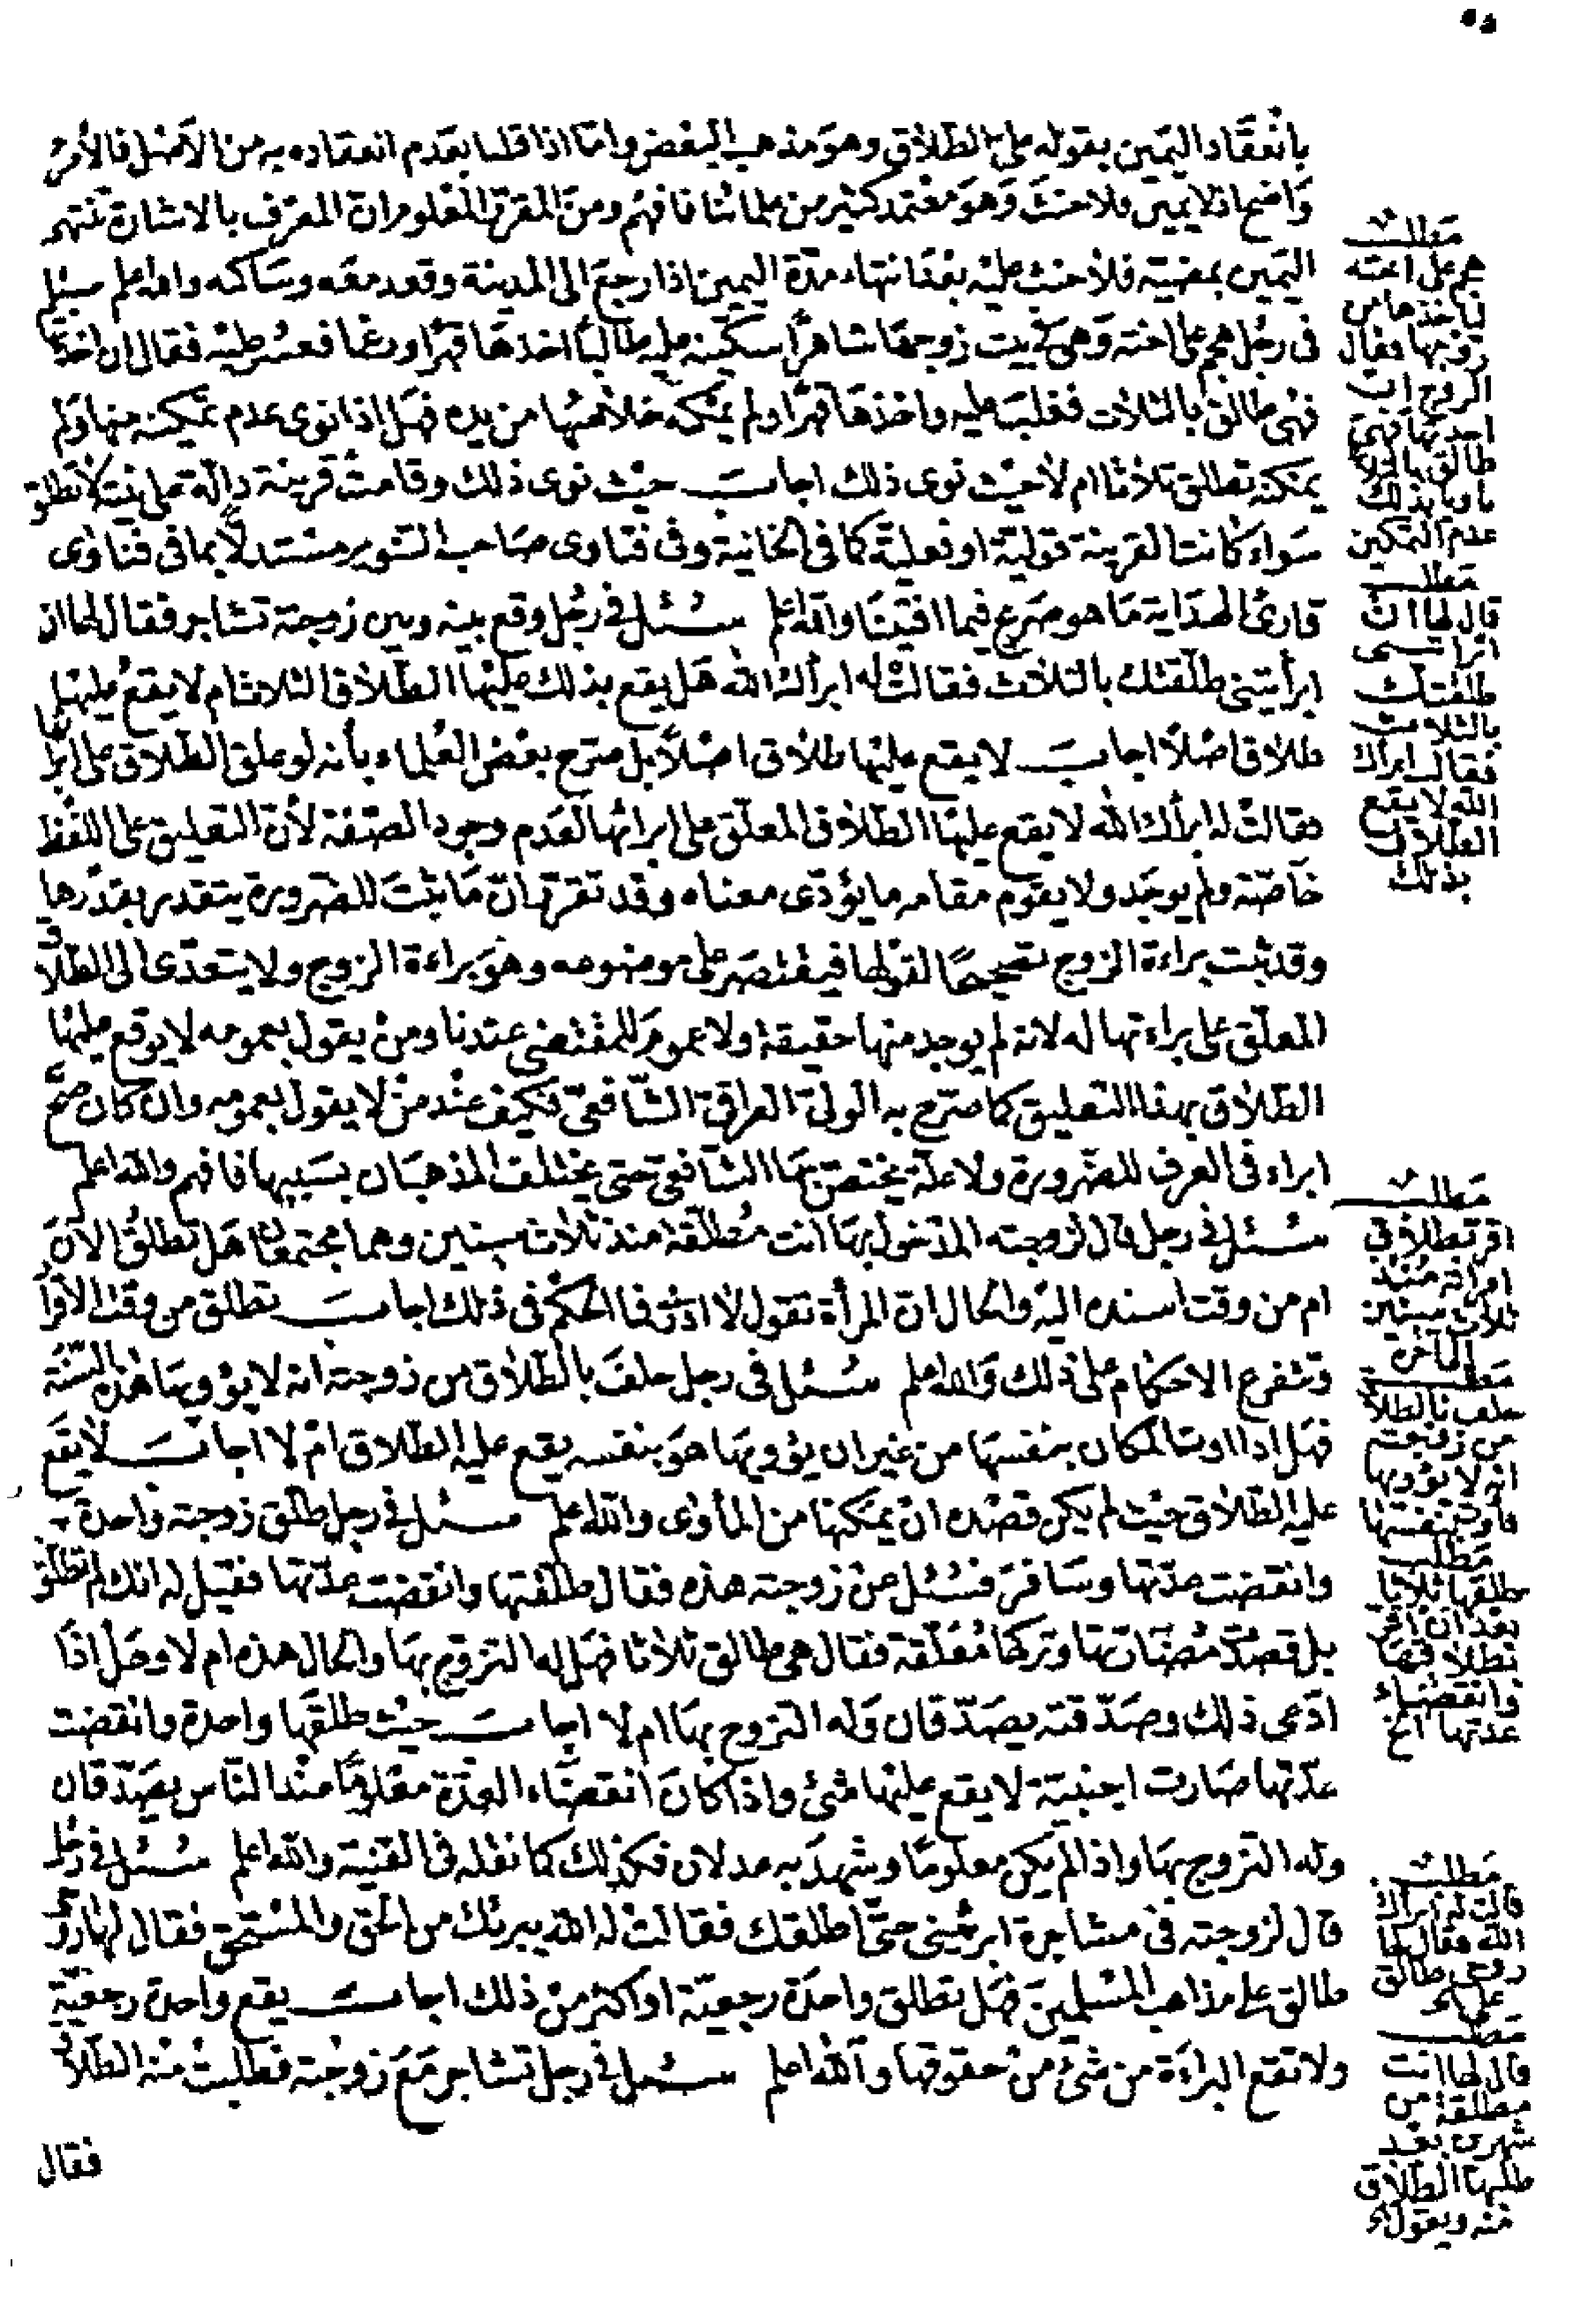 ٥٥
بانعقاد اليمين بقوله علي الطلاق وهو مذهب البعض واما اذا قلنا بعدم انعقاده به من الاصل فالأمر
واضح اذ لا يمين فلا حنث وهو معتمد كثير من علمائنا فافهم ومن المقرر المعلوم ان المعرف بالاشارة تنتهى
اليمين بمضيته فلا حنث عليه بعد انتهاء مدة اليمين اذا رجع الى المدينة وقعد معه وساكنه والله اعلم سئل
فى رجل هجم على اخته وهى فى بيت زوجها شاهرا سكينه عليه طالبا اخذها قهرا ورغما فعسر عليه فقال ان اخذتها
فهى طالق بالثلاث فغلب عليه واخذها قهرا ولم يمكنه خلاصها من يده فهل اذا نوى عدم تمكينه منها ولم
يمكنه تطلق ثلاثا ام لا حيث نوى ذلك اجاب حيث نوى ذلك وقامت قرينة دالة على نيته لا تطلق
سواء كانت القرينة قولية او فعلية كما فى الخانية وفى فتاوى صاحب التنوير مستدلا بما فى فتاوى
قارئ الهداية ما هو صريح فيما افتينا والله اعلم سئل فى رجل وقع بينه وبين زوجته تشاجر فقال لها ان
ابرأتينى طلقتك بالثلاث فقالت له ابرأك الله هل يقع بذلك عليها الطلاق الثلاث ام لا يقع عليها
طلاق اصلا اجاب لا يقع عليها طلاق اصلا بل صرح بعض العلماء بأنه لو علق الطلاق على ابرائها
فقالت له ابرأك الله لا يقع عليها الطلاق المعلق على ابرائها لعدم وجود الصفة لأن التعليق على اللفظ
خاصة ولم يوجد ولا يقوم مقامه ما يؤدى معناه وقد تقرر ان ما يثبت للضرورة يتقدر بقدرها
وقد ثبت براءة الزوج تصحيحا لقولها فيقتصر على موضوعه وهو براءة الزوج ولا يتعدى الى الطلاق
المعلق على براءتها له لانه لم يوجد منها حقيقة ولا عموم للمقتضى عندنا ومن يقول بعمومه لا يوقع عليها
الطلاق بهذا التعليق كما صرح به الولى العراقى الشافعى فكيف عند من لا يقول بعمومه وان كان صح
ابراء فى العرف للضرورة ولا علة يختص بها الشافعى حتى يختلف المذهبان بسببها فافهم والله اعلم
سئل فى رجل قال لزوجته المدخول بها انت مطلقة منذ ثلاث سنين وهما مجتمعان هل تطلق الآن
ام من وقت اسنده اليه والحال ان المرأة تقول لا ادرى فما الحكم فى ذلك اجاب تطلق من وقت الاقرار
وتتفرع الاحكام على ذلك والله اعلم سئل فى رجل حلف بالطلاق من زوجته انه لا يؤويها هذه السنة
فهل اذا اوت المكان بنفسها من غير ان يؤويها هو بنفسه يقع عليه الطلاق ام لا اجاب لا يقع
عليه الطلاق حيث لم يكن قصده ان يمكنها من المأوى والله اعلم سئل فى رجل طلق زوجته واحدة
وانقضت عدتها وسافر فسئل عن زوجته هذه فقال طلقتها وانقضت عدتها فقيل له انك لم تطلق
بل قصدت مضارتها وتركها معلقة فقال هى طالق ثلاثا فهل له التزوج بها والحال هذه ام لا وهل اذا
ادعى ذلك وصدقته يصدقان وله التزوج بها ام لا اجاب حيث طلقها واحدة وانقضت
عدتها صارت اجنبية لا يقع عليها شئ واذا كان انقضاء العدة معلوما عند الناس يصدقان
وله التزوج بها واذا لم يكن معلوما وشهد به عدلان فكذلك كما نقله فى القنية والله اعلم سئل فى رجل
قال لزوجته فى مشاجرة ابرئينى حتى اطلقك فقالت له الله يبرئك من الحق والمستحق فقال لها روحى
طالق على مذاهب المسلمين فهل تطلق واحدة رجعية او اكثر من ذلك اجاب يقع واحدة رجعية
ولا تقع البراءة من شئ من حقوقها والله اعلم سئل فى رجل تشاجر مع زوجته فطلبت منه الطلاق
فقال
مطلب
هجم على اخته
ليأخذها من
زوجها فقال
الزوج ان
اخذتها فهى
طالق بالثلاث
ناويا بذلك
عدم التمكين
مطلب
قال لها ان
ابرأتينى
طلقتك
بالثلاث
فقالت ابرأك
الله لا يقع
الطلاق
بذلك
مطلب
اقر بطلاق
امرأته منذ
ثلاث سنين
الى آخره
مطلب
حلف بالطلاق
من زوجته
انه لا يؤويها
فأوت بنفسها
مطلب
طلقها ثلاثا
بعد ان اقر
بطلاقها
وانقضاء
عدتها الخ
مطلب
قالت له ابرأك
الله فقال لها
روحى طالق
مطلب
قال لها انت
مطلقة من
شهرين بعد
طلبها الطلاق
منه ويقول